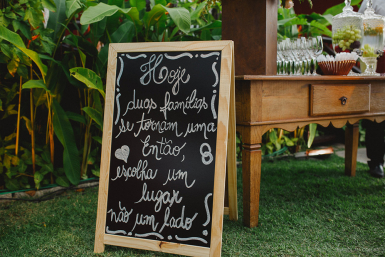 Hoje
duas famílias
se tornam uma
Então,
escolha um
lugar
não um lado